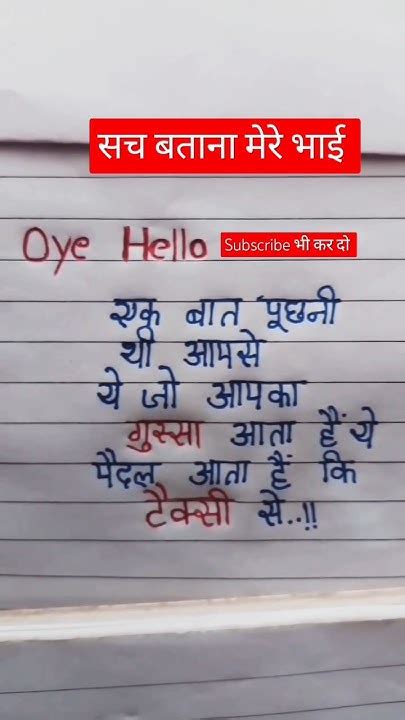 सच बताना मेरे भाई
Oye Hello
Subscribe भी कर दो
एक बात पूछनी
थी आपसे
ये जो आपका
गुस्सा आता हैं ये
पैदल आता हैं कि
टैक्सी से..!!